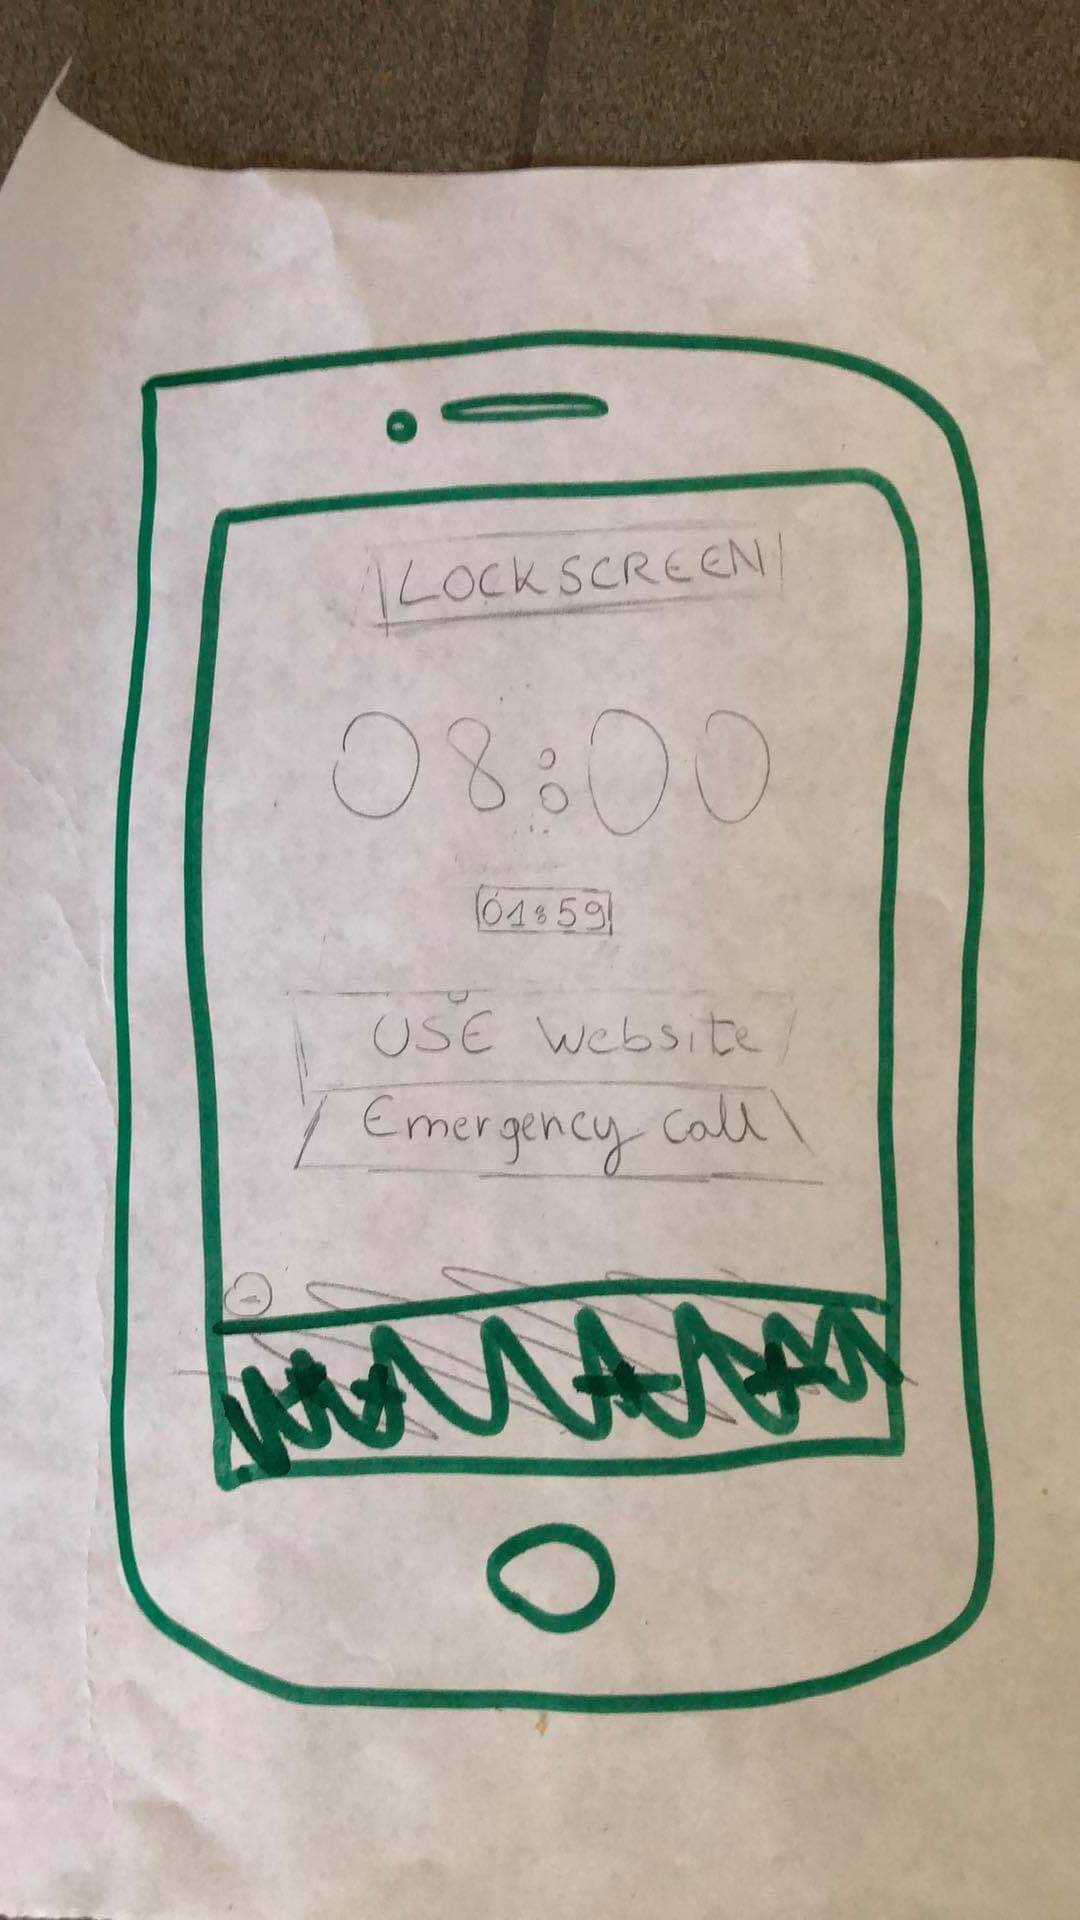 LOCKSCREEN
08:00
01:59
USE Website
Emergency call